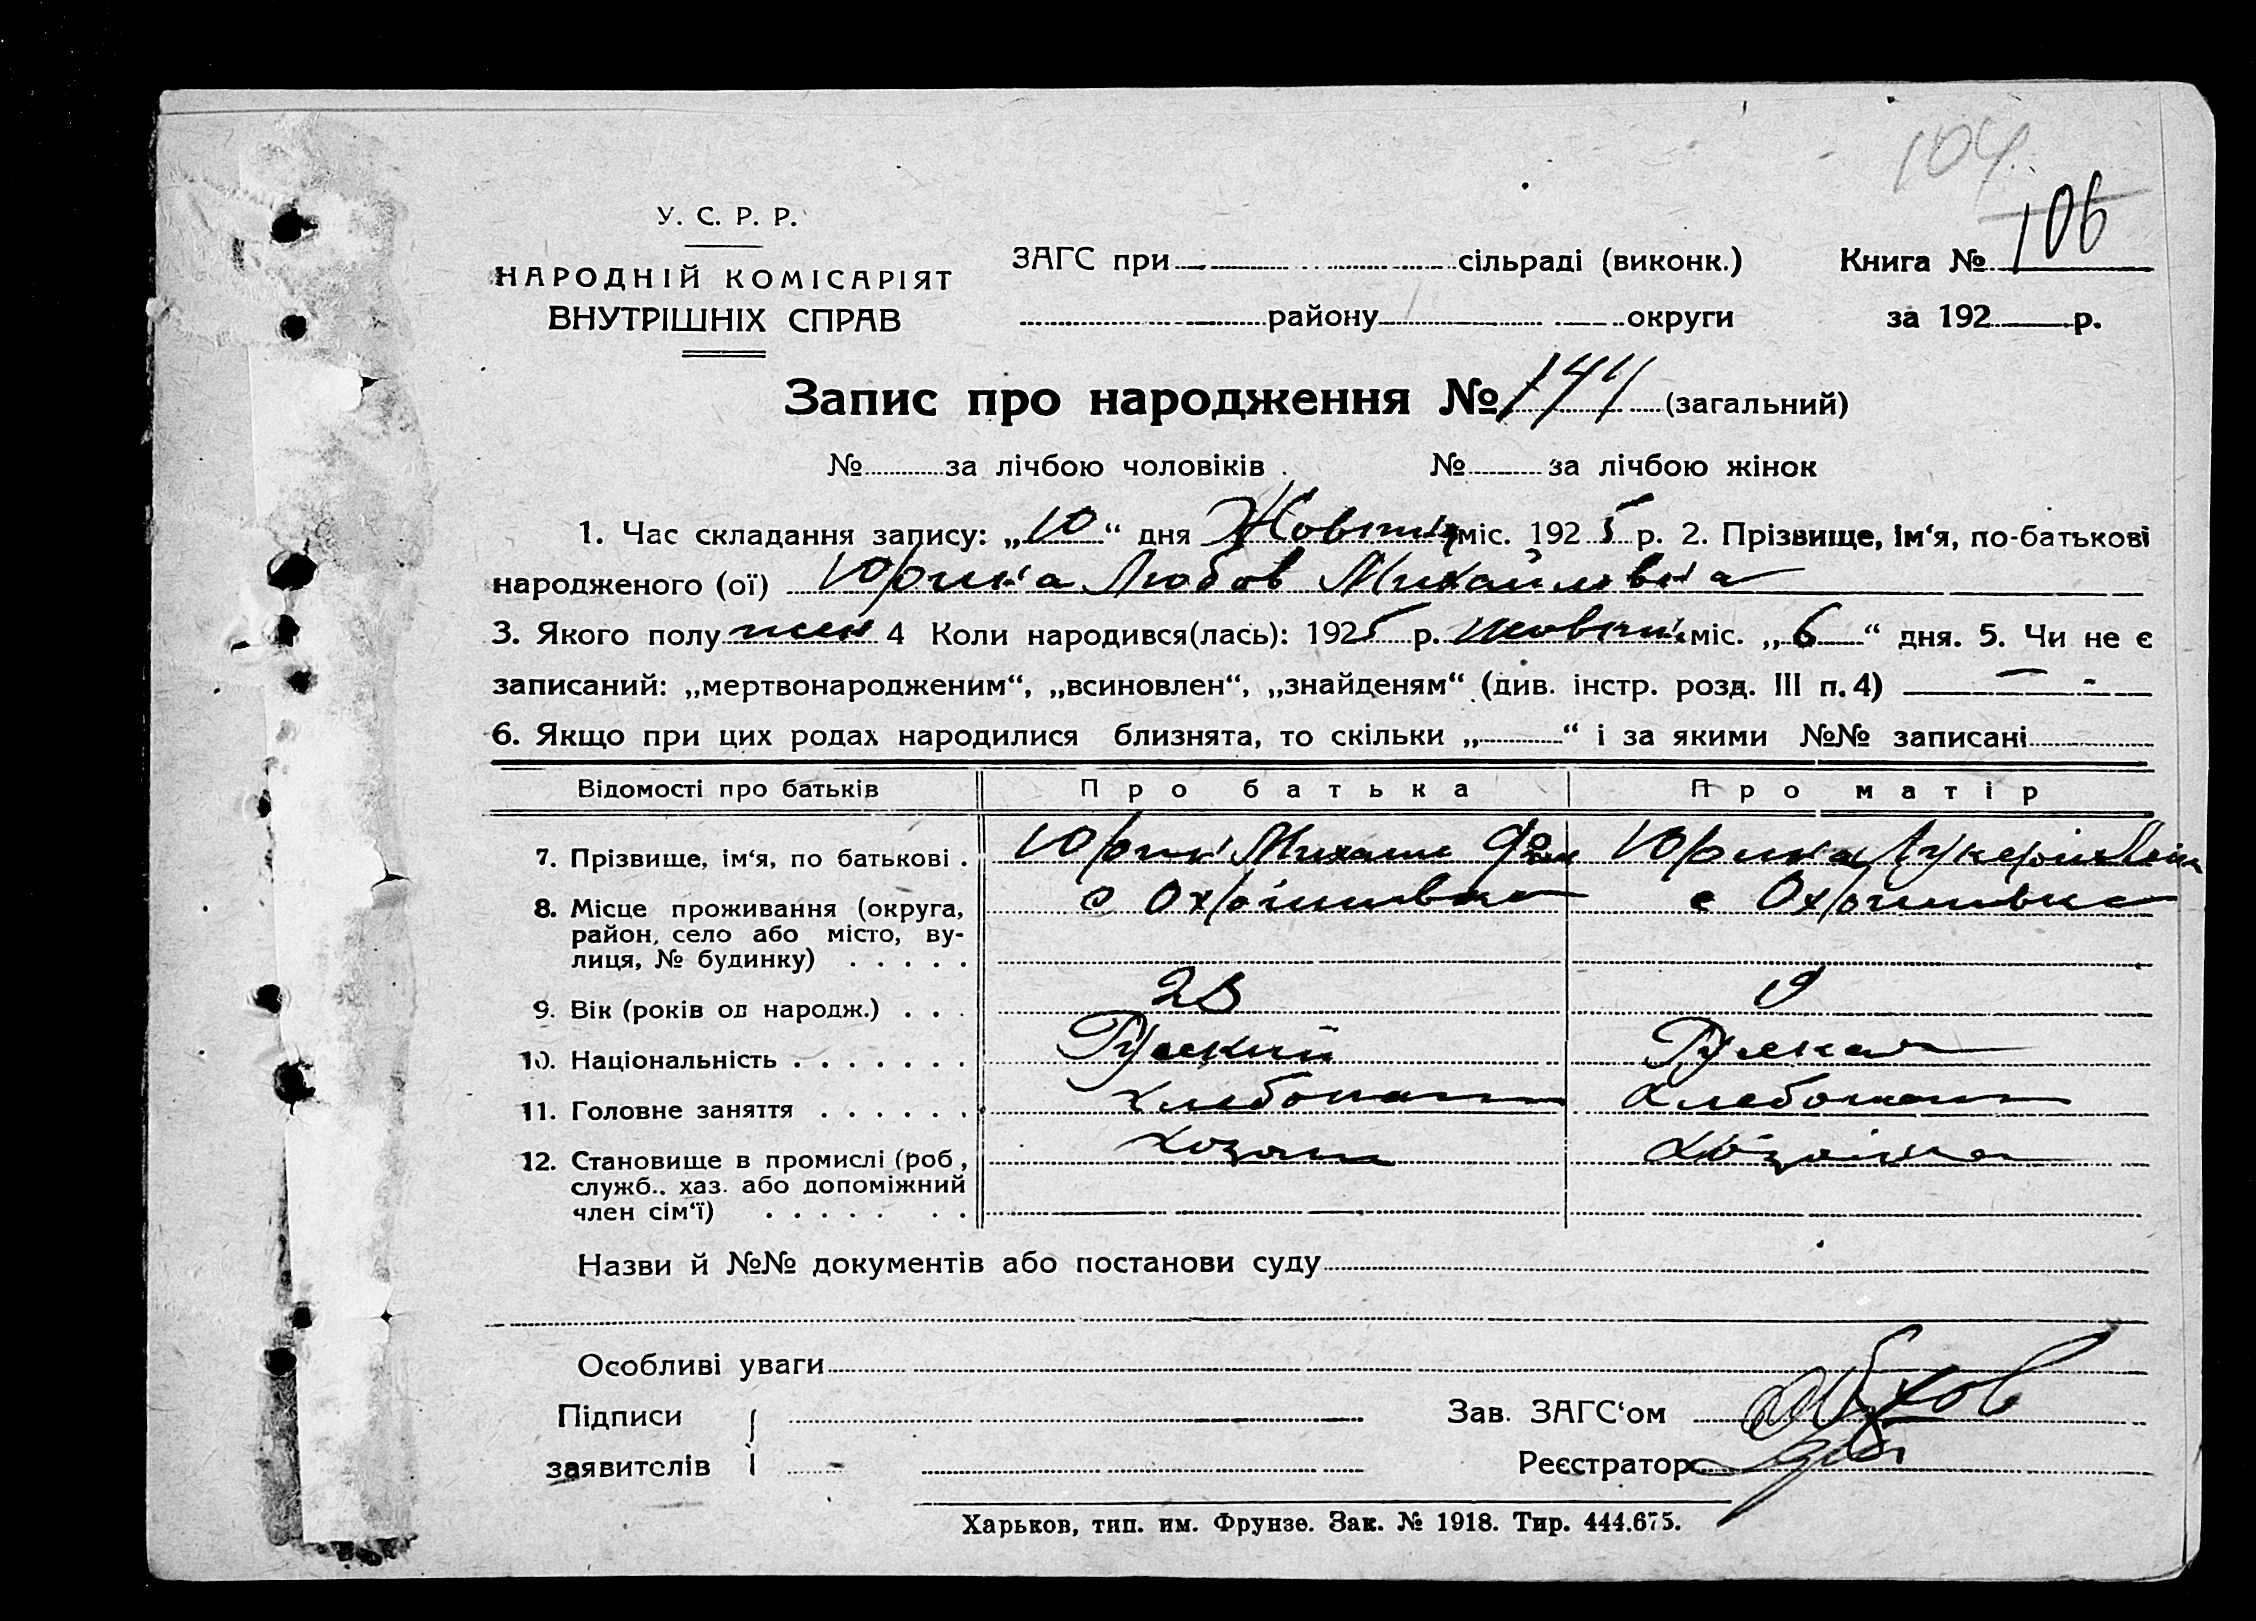 104
У. С. Р. Р.
НАРОДНІЙ КОМІСАРІЯТ
ВНУТРІШНІХ СПРАВ
ЗАГС при сільраді (виконк.)
Книга № 106
району округи
за 192 р.
Запис про народження № 144 (загальний)
№ за лічбою чоловіків . № за лічбою жінок
1. Час складання запису: „10“ дня Жовтня міс. 1925 р. 2. Прізвище, ім‘я, по-батькові
народженого (ої) Юрика Любов Михайлівна
3. Якого полу жен 4 Коли народився(лась): 1925 р. жовтня міс. „6“ дня. 5. Чи не є
записаний: „мертвонародженим“, „всиновлен“, „знайденям“ (див. інстр. розд. III п. 4) — -
6. Якщо при цих родах народилися близнята, то скільки „ “ і за якими №№ записані
Відомості про батьків Про батька Про матір
7. Прізвище, ім‘я, по батькові . Юрик Михаил Юрика Лукерія
8. Місце проживання (округа, с Охрімівка с Охрімівка
район, село або місто, ву-
лиця, № будинку) . . . . .
9. Вік (років од народж.) . . . 23 19
10. Національність . . . . . . . Руский Руская
11. Головне заняття . . . . . . Хлебопаш Хлебопаш
12. Становище в промислі (роб., Хозяин Хозяйка
служб., хаз. або допоміжний
член сім‘ї) . . . . . . .
Назви й №№ документів або постанови суду
Особливі уваги
Підписи
Зав. ЗАГС‘ом
заявителів
Реєстратор
Харьков, тип. им. Фрунзе. Зак. № 1918. Тир. 444.675.